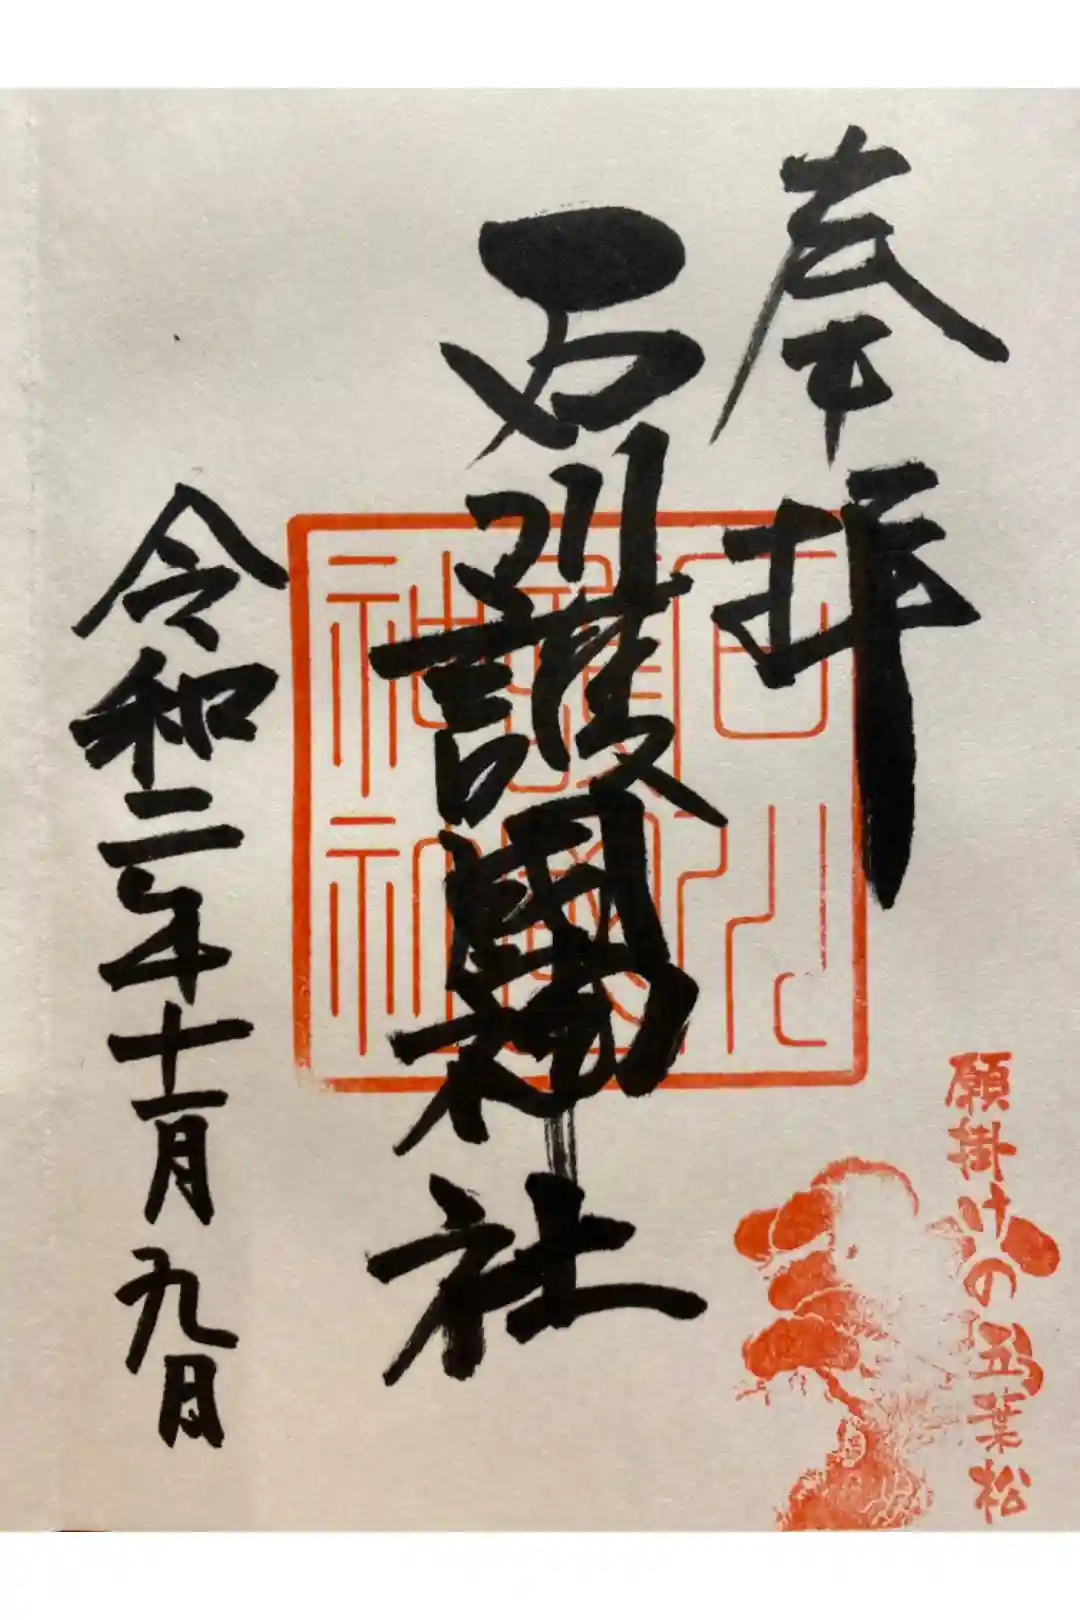 奉拝
石川護國神社
令和二年十一月九日
石川護國神社
願掛けの五葉松